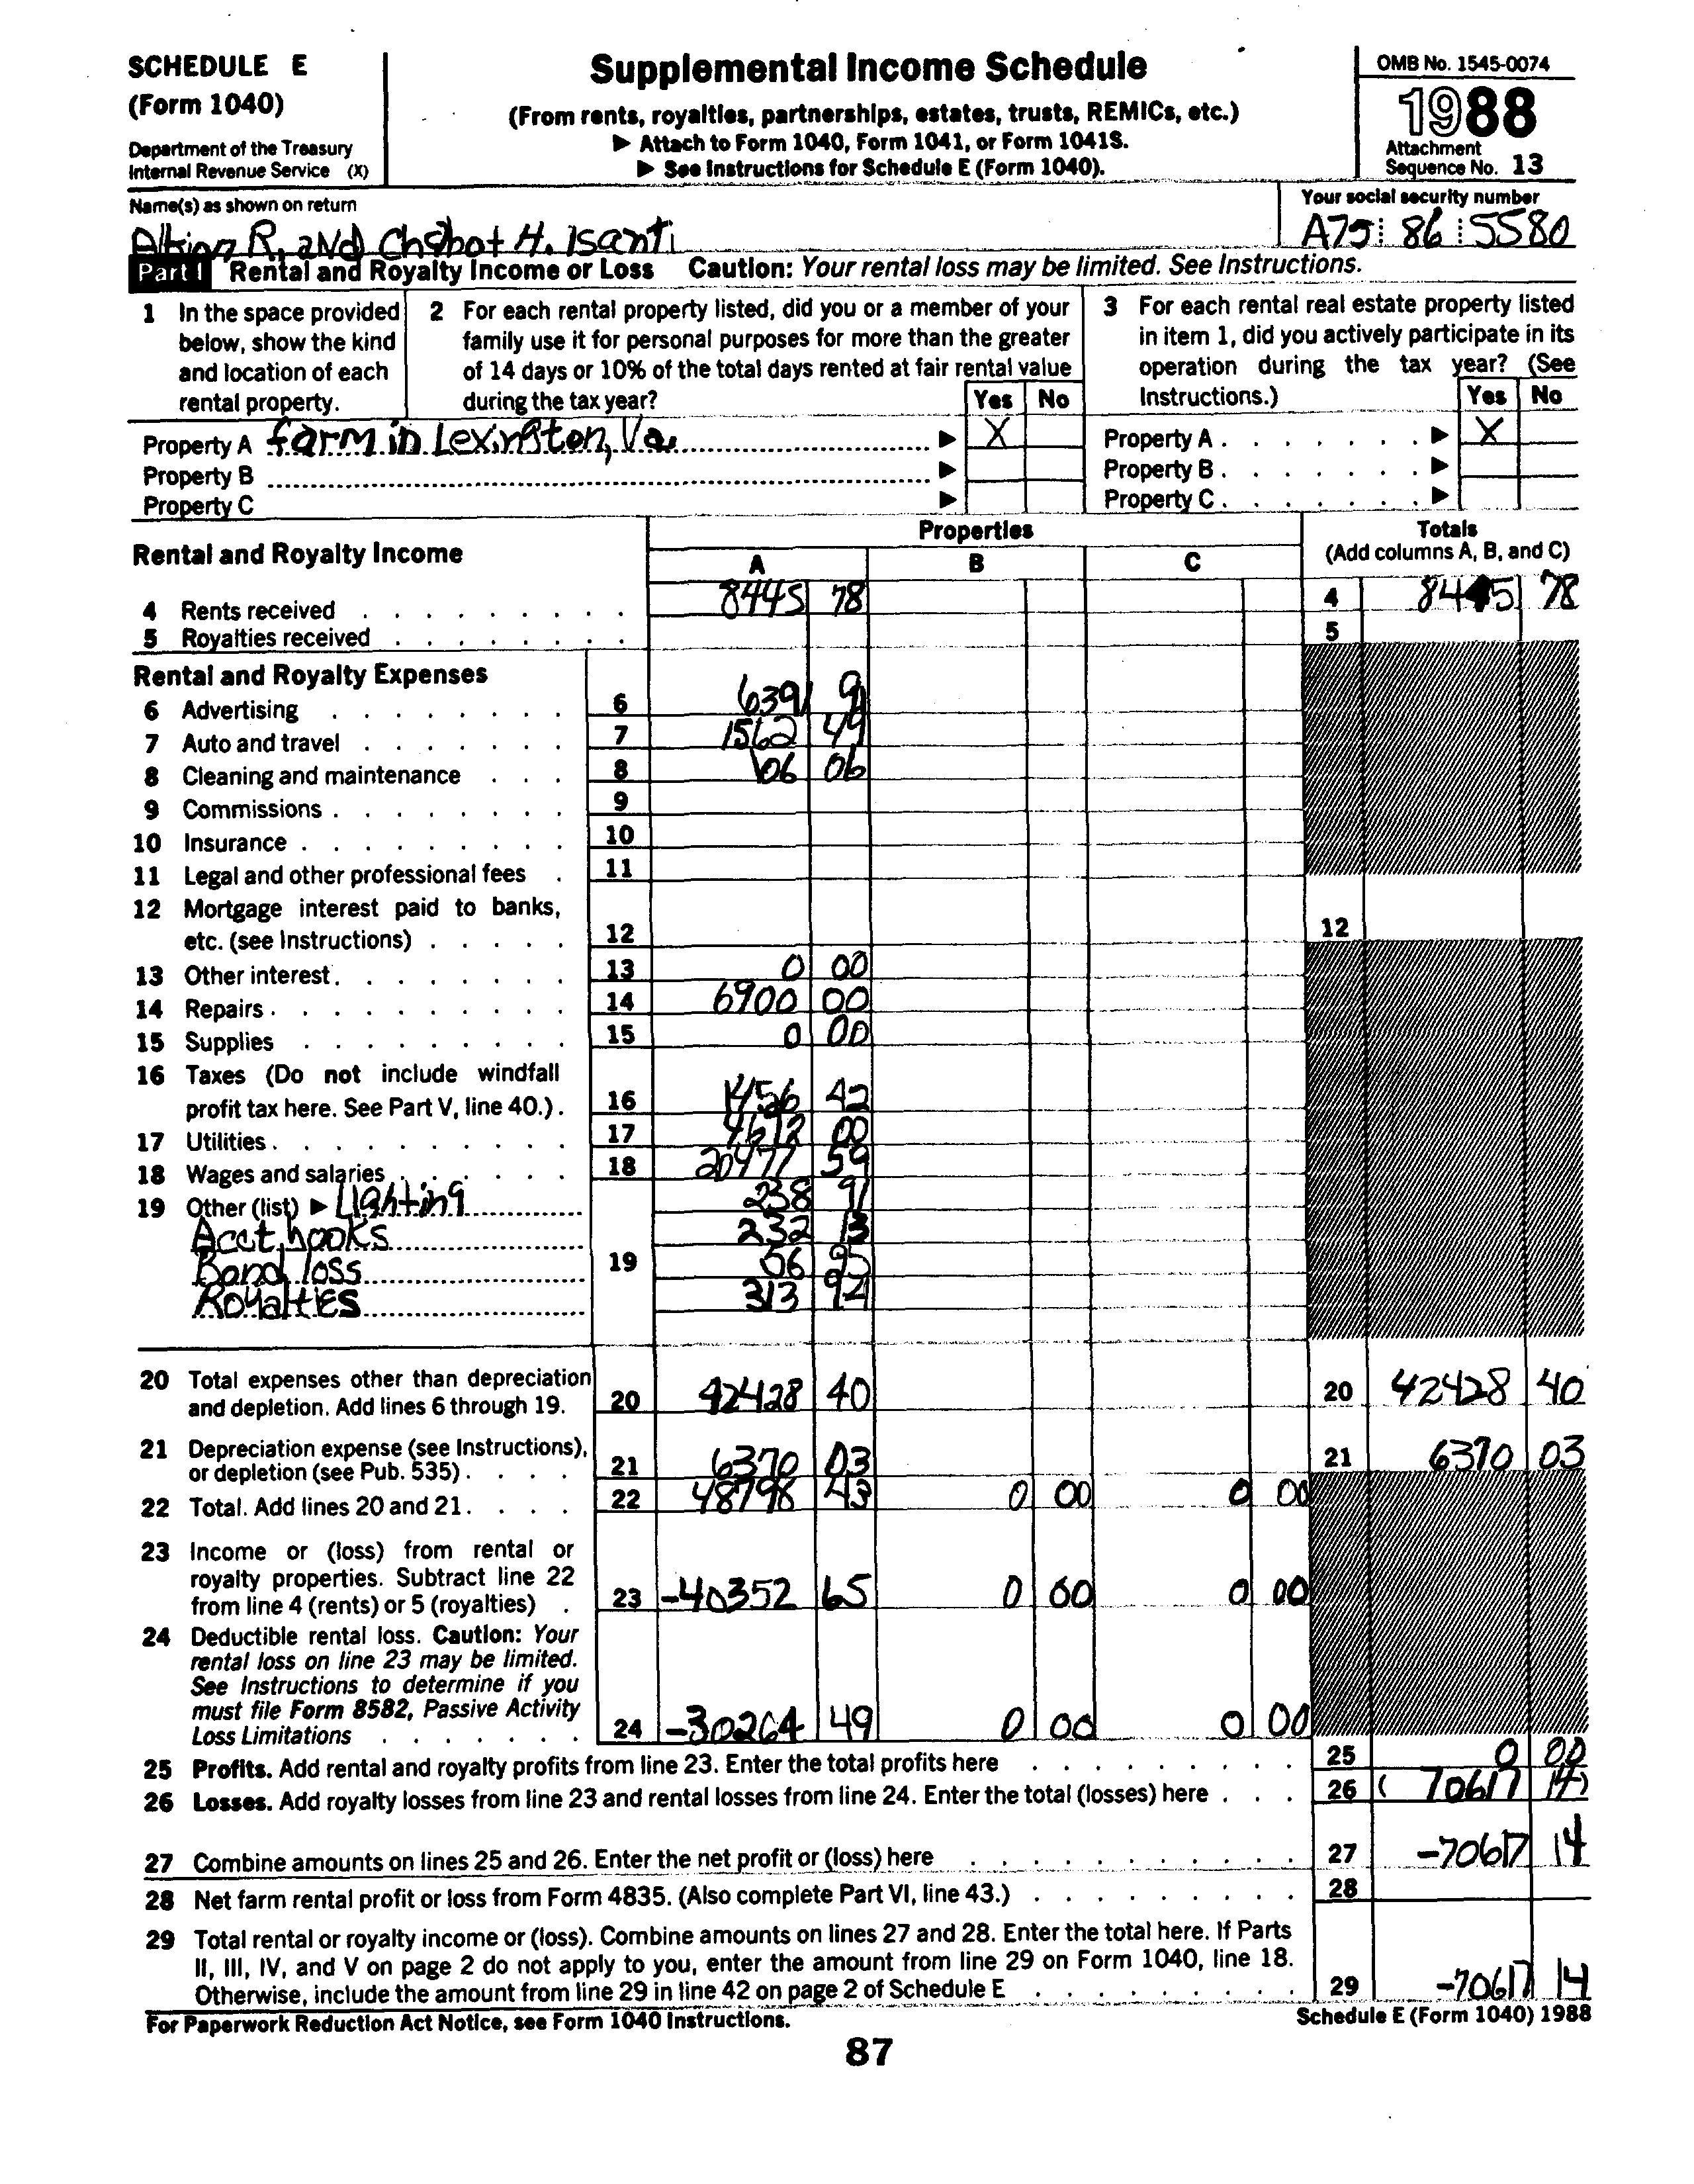 SCHEDULE E
(Form 1040)
Department of the Treasury
Internal Revenue Service (X)
Supplemental Income Schedule
(From rents, royalties, partnerships, estates, trusts, REMICs, etc.)
▶ Attach to Form 1040, Form 1041, or Form 1041S.
▶ See Instructions for Schedule E (Form 1040).
OMB No. 1545-0074
1988
Attachment
Sequence No. 13
Name(s) as shown on return
R. and Chabot H. Isanti
Your social security number
A75 86 5580
Part I Rental and Royalty Income or Loss Caution: Your rental loss may be limited. See Instructions.
1 In the space provided below, show the kind and location of each rental property.
2 For each rental property listed, did you or a member of your family use it for personal purposes for more than the greater of 14 days or 10% of the total days rented at fair rental value during the tax year?
Yes No
3 For each rental real estate property listed in item 1, did you actively participate in its operation during the tax year? (See Instructions.)
Yes No
Property A farm in Lexington, Va. ▶ X Property A ▶ X
Property B ▶ Property B ▶
Property C ▶ Property C ▶
Rental and Royalty Income
Properties
A B C
Totals
(Add columns A, B, and C)
4 Rents received 8445 78 4 8445 78
5 Royalties received 5
Rental and Royalty Expenses
6 Advertising 6 6391 91
7 Auto and travel 7 1562 49
8 Cleaning and maintenance 8 106 06
9 Commissions 9
10 Insurance 10
11 Legal and other professional fees 11
12 Mortgage interest paid to banks,
etc. (see Instructions) 12 12
13 Other interest 13 0 00
14 Repairs 14 6900 00
15 Supplies 15 0 00
16 Taxes (Do not include windfall
profit tax here. See Part V, line 40.) 16 1456 42
17 Utilities 17 4612 00
18 Wages and salaries 18 20477 59
19 Other (list) ▶ Lighting 238 91
Acct hooks 232 13
Band loss 19 56 95
Royalties 313 94
20 Total expenses other than depreciation
and depletion. Add lines 6 through 19. 20 42428 40 20 42428 40
21 Depreciation expense (see Instructions),
or depletion (see Pub. 535) 21 6370 03 21 6370 03
22 Total. Add lines 20 and 21 22 48798 43 0 00 0 00
23 Income or (loss) from rental or
royalty properties. Subtract line 22
from line 4 (rents) or 5 (royalties) 23 -40352 65 0 00 0 00
24 Deductible rental loss. Caution: Your
rental loss on line 23 may be limited.
See Instructions to determine if you
must file Form 8582, Passive Activity
Loss Limitations 24 -30264 49 0 00 0 00
25 Profits. Add rental and royalty profits from line 23. Enter the total profits here 25 0 00
26 Losses. Add royalty losses from line 23 and rental losses from line 24. Enter the total (losses) here 26 ( 70617 14)
27 Combine amounts on lines 25 and 26. Enter the net profit or (loss) here 27 -70617 14
28 Net farm rental profit or loss from Form 4835. (Also complete Part VI, line 43.) 28
29 Total rental or royalty income or (loss). Combine amounts on lines 27 and 28. Enter the total here. If Parts
II, III, IV, and V on page 2 do not apply to you, enter the amount from line 29 on Form 1040, line 18.
Otherwise, include the amount from line 29 in line 42 on page 2 of Schedule E 29 -70617 14
For Paperwork Reduction Act Notice, see Form 1040 Instructions. Schedule E (Form 1040) 1988
87